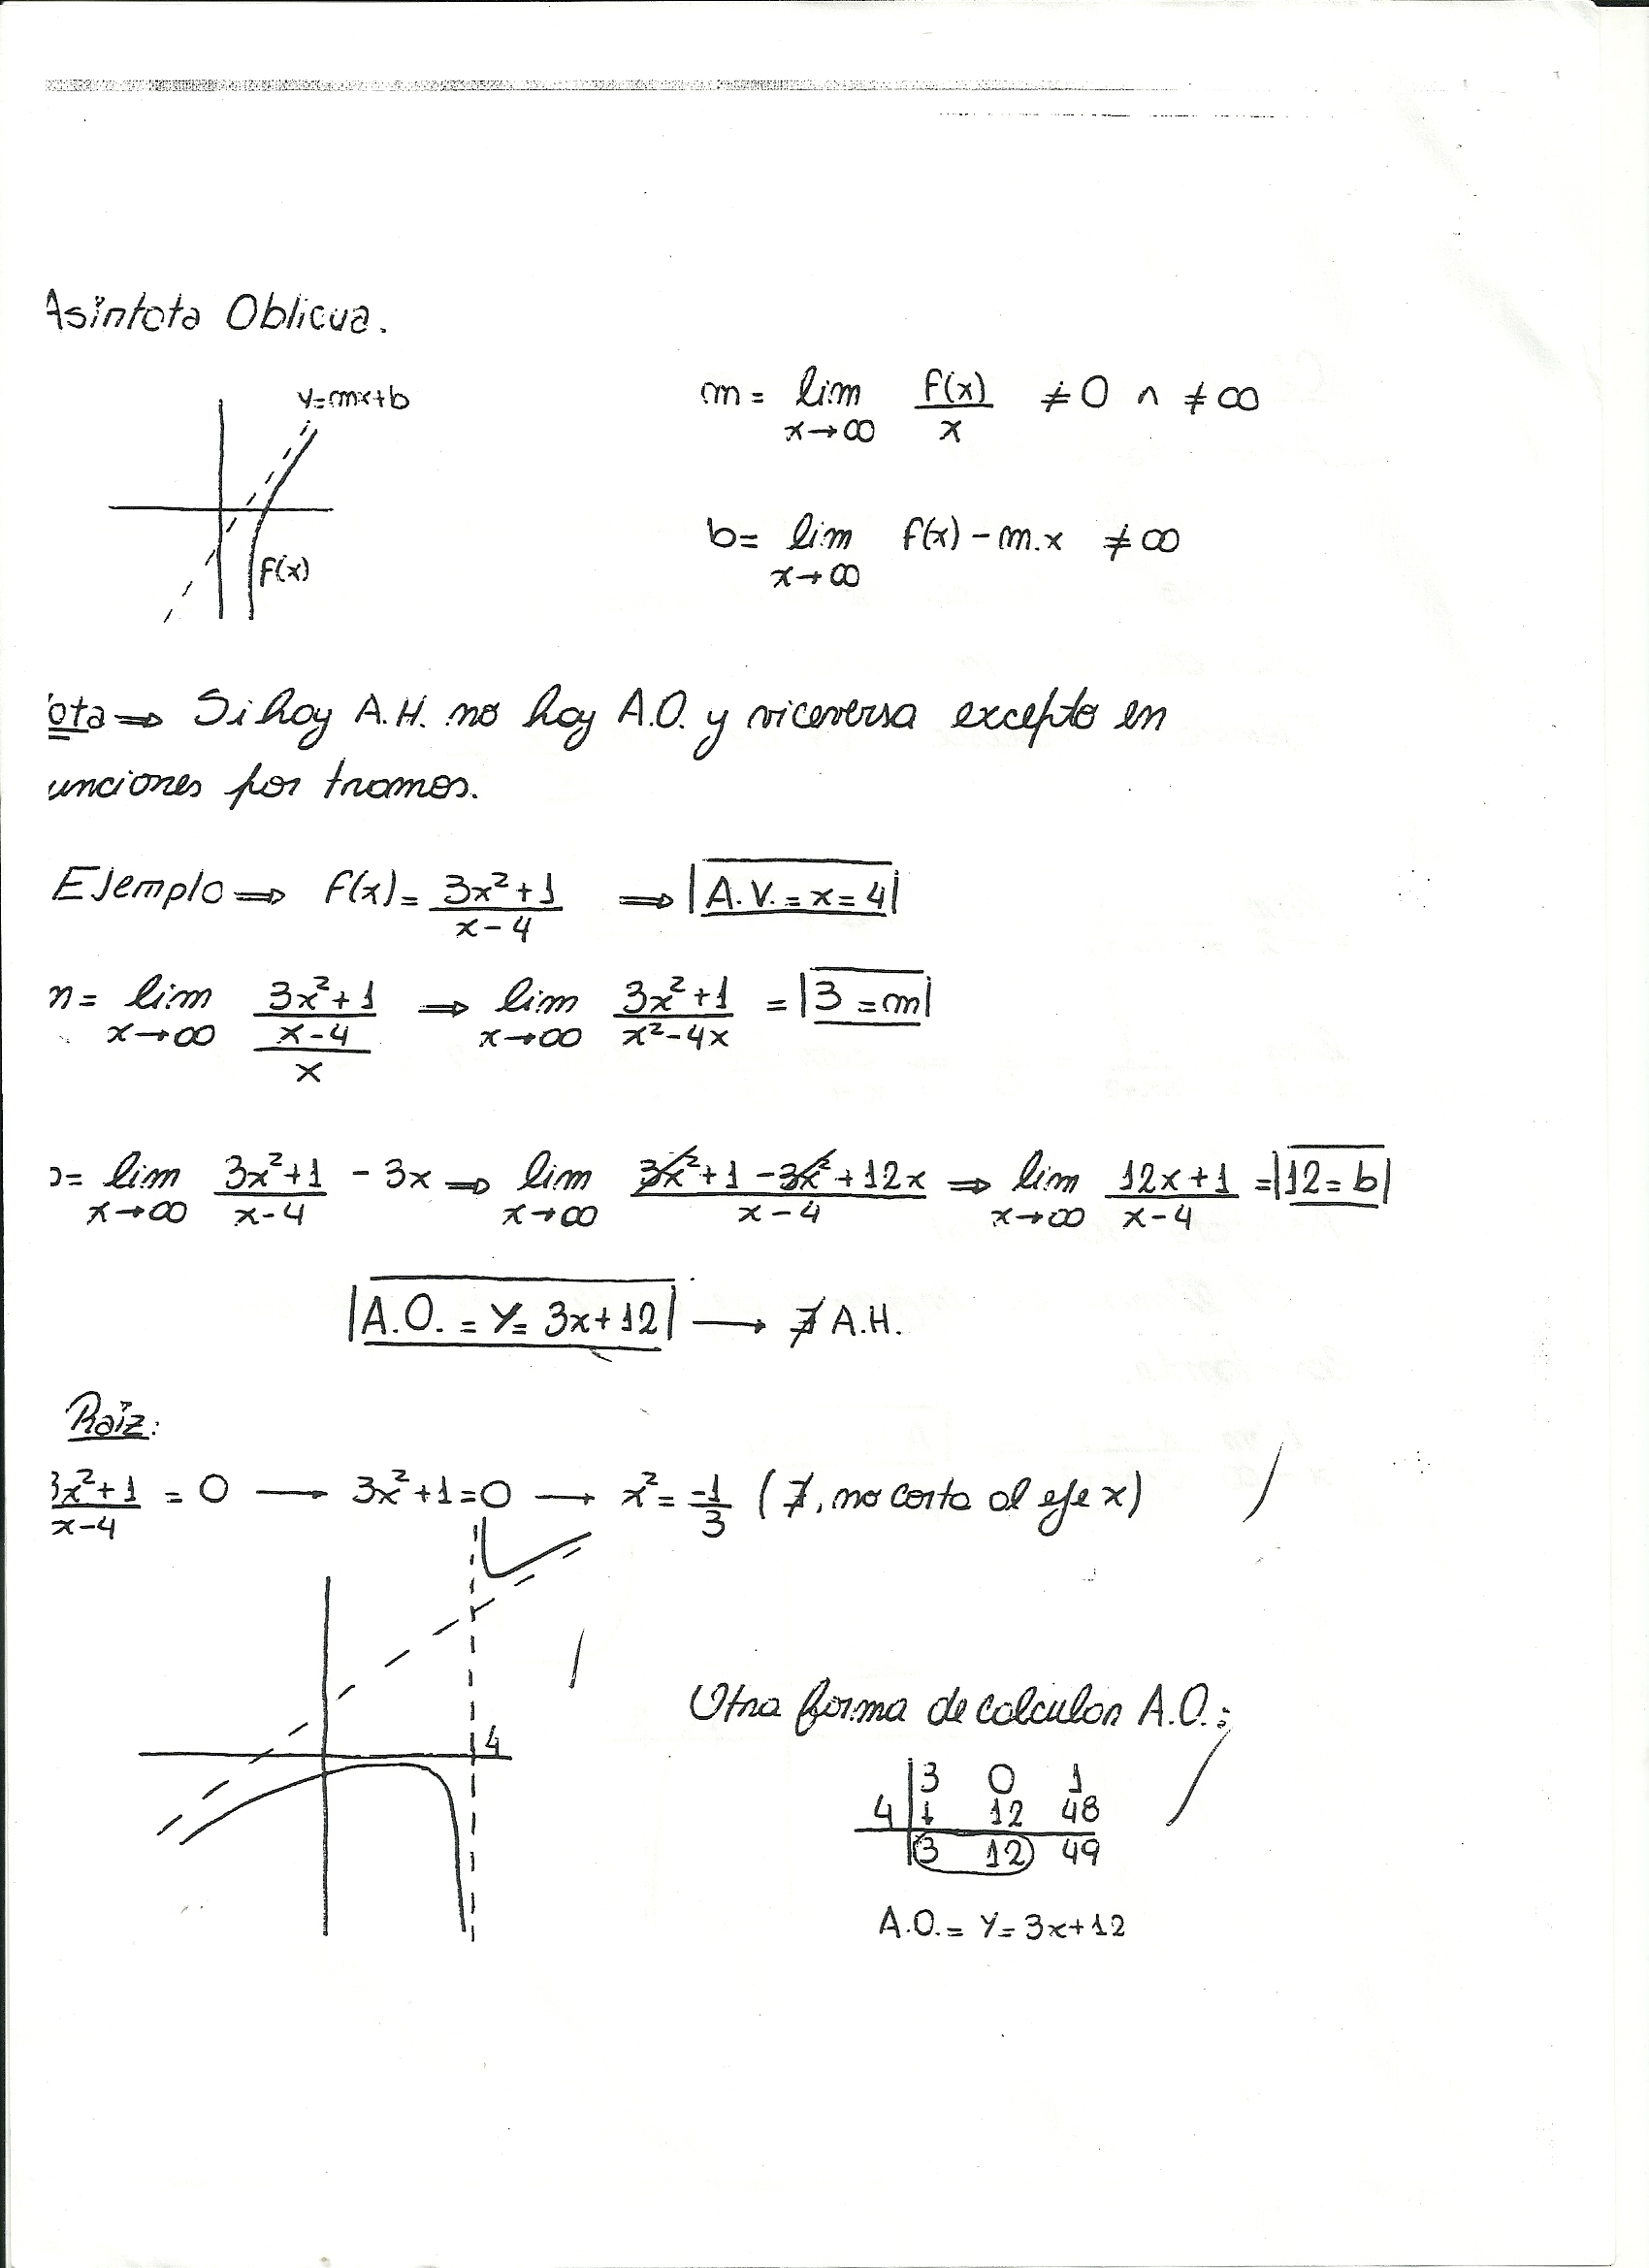 Asíntota Oblicua.
y=mx+b
f(x)
m = lim x→∞ f(x)/x ≠0 ∧ ≠∞
b= lim x→∞ f(x) - m.x ≠∞
ota ⇒ Si hay A.H. no hay A.O. y viceversa excepto en
unciones por tramos.
Ejemplo ⇒ f(x) = (3x²+1)/(x-4) ⇒ |A.V. = x = 4|
m = lim x→∞ ((3x²+1)/(x-4))/x ⇒ lim x→∞ (3x²+1)/(x²-4x) = |3 = m|
b= lim x→∞ (3x²+1)/(x-4) - 3x ⇒ lim x→∞ (3x²+1-3x²+12x)/(x-4) ⇒ lim x→∞ (12x+1)/(x-4) = |12 = b|
|A.O. = y = 3x+12| → ∄ A.H.
Raíz:
(3x²+1)/(x-4) = 0 → 3x²+1=0 → x² = -1/3 (∄, no corta al eje x)
4
Otra forma de calcular A.O.:
3 0 1
4 ↓ 12 48
3 12 49
A.O. = y = 3x+12